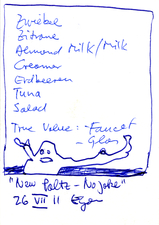 Zwiebel
Zitrone
Almond Milk/Milk
Creamer
Erdbeeren
Tuna
Salad
True Value: - Faucet
- Glas
"New Paltz - No Joke"
26 VII 11